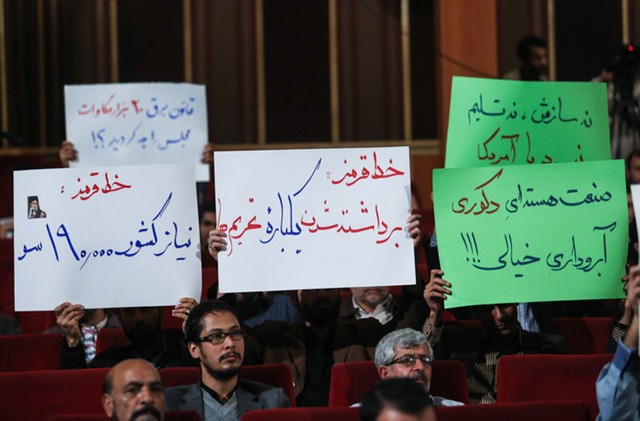 قانون برق ۲۰ هزار مگاوات
مجلس را چه کردید ؟!
نه سازش ، نه تسلیم
نبرد با آمریکا
خط قرمز :
نیاز کشور ۱۹۰,۰۰۰ سو
خط قرمز :
برداشته شدن یکباره تحریم ها
صنعت هسته ای دکوری
آبروداری خیالی !!!